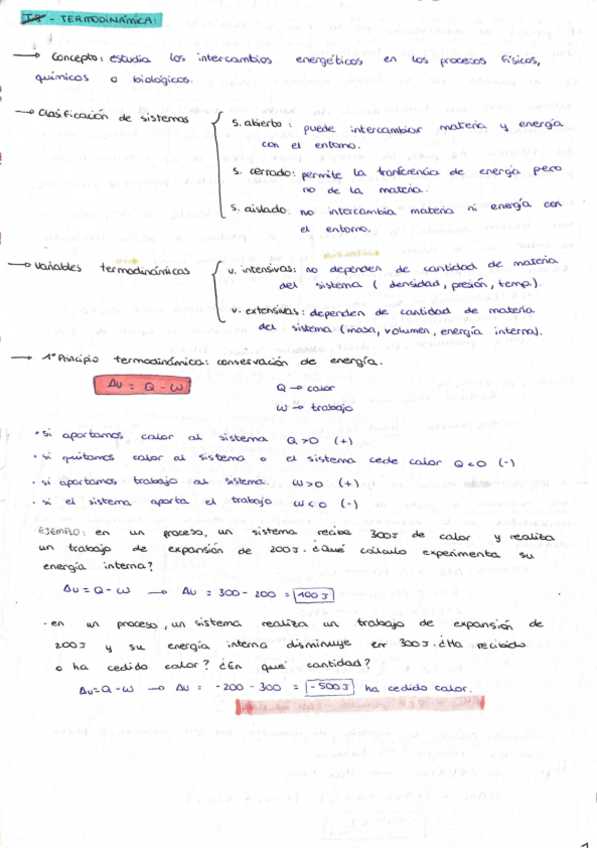 T9 - TERMODINÁMICA:
→ Concepto: estudia los intercambios energéticos en los procesos físicos,
químicos o biológicos.
→ Clasificación de sistemas
s. abierto: puede intercambiar materia y energía
con el entorno.
s. cerrado: permite la tranferencia de energía pero
no de la materia.
s. aislado: no intercambia materia ni energía con
el entorno.
→ Variables termodinámicas
v. intensivas: no dependen de cantidad de materia
del sistema ( densidad, presión, temp.).
v. extensivas: dependen de cantidad de materia
del sistema (masa, volumen, energía interna).
→ 1º Principio termodinámica: conservación de energía.
ΔU = Q - W
Q → calor
W → trabajo
· si aportamos calor al sistema Q>0 (+)
· si quitamos calor al sistema o el sistema cede calor Q<0 (-)
· si aportamos trabajo al sistema. W>0 (+)
· si el sistema aporta el trabajo W<0 (-)
EJEMPLO: en un proceso, un sistema recibe 300J de calor y realiza
un trabajo de expansión de 200J. ¿Qué cálculo experimenta su
energía interna?
ΔU = Q - W → ΔU = 300 - 200 = 100J
· en un proceso, un sistema realiza un trabajo de expansión de
200J y su energía interna disminuye en 300J. ¿Ha recibido
o ha cedido calor? ¿En qué cantidad?
ΔU=Q-W → ΔU = -200 - 300 = -500J ha cedido calor.